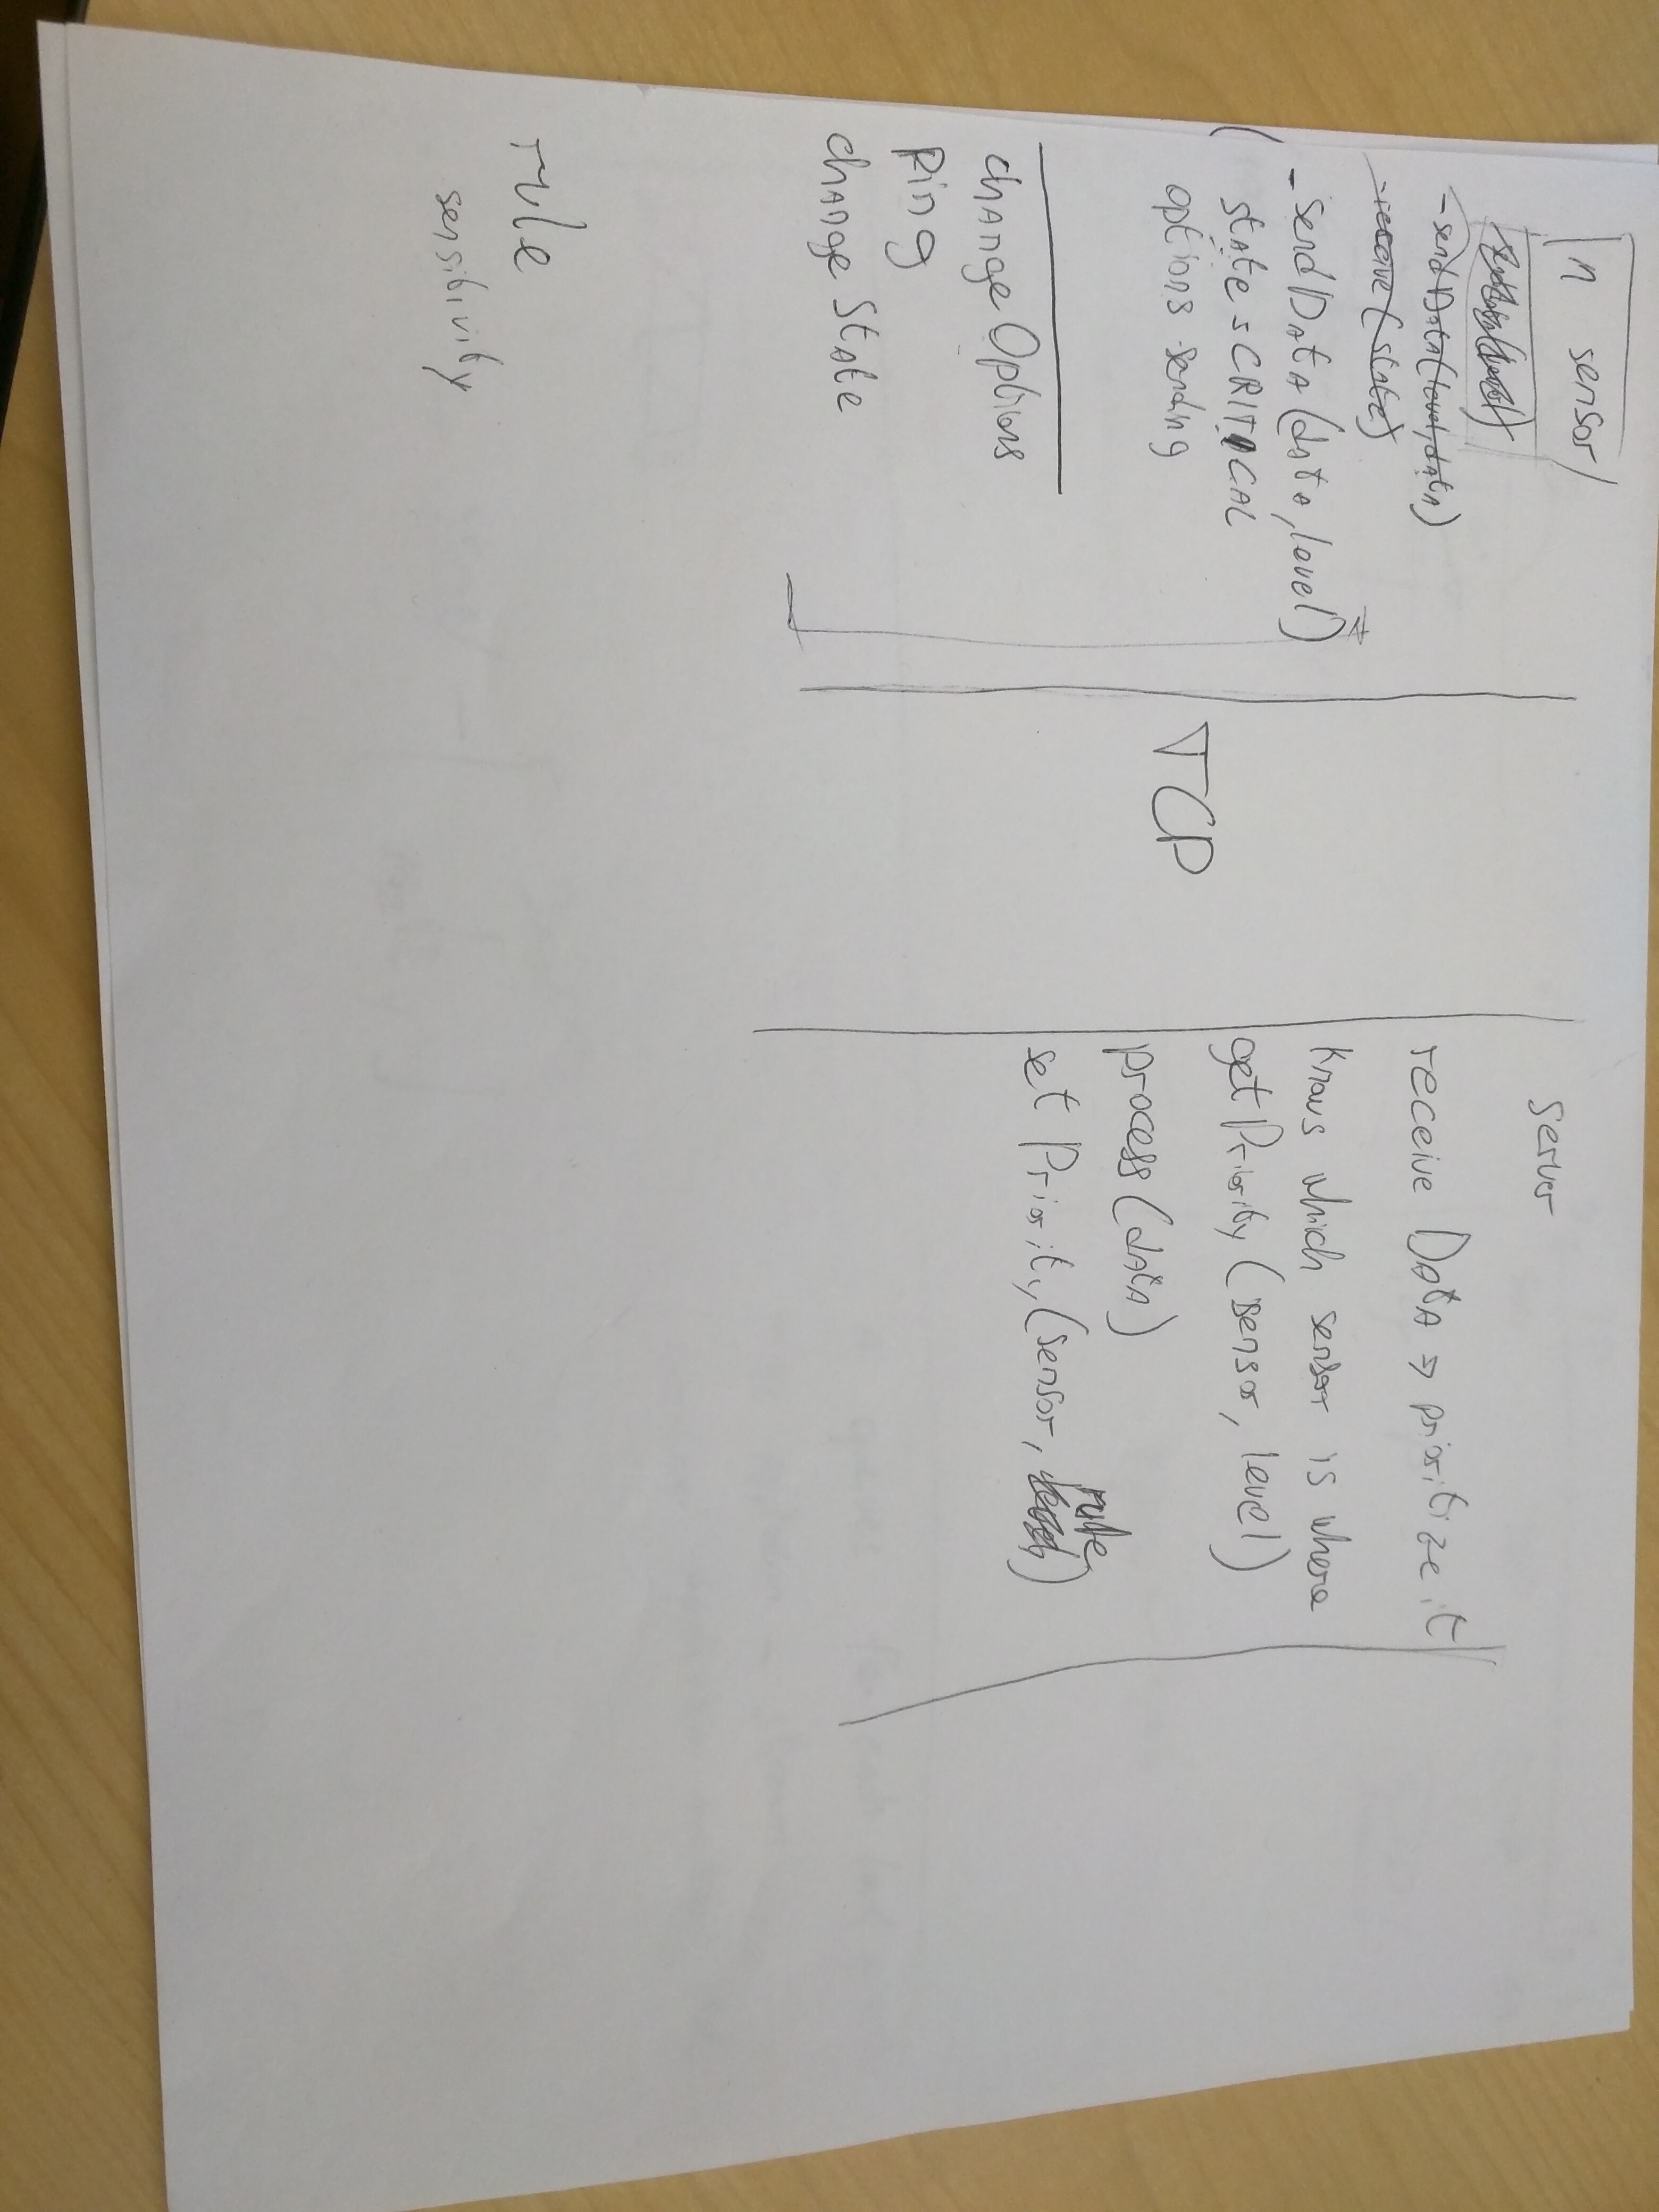 n sensor
- sendData(level, data)
- receive (state)
- sendData (data, level)
state = CRITICAL
options sending
change Options
Ping
change State
rule
sensitivity
TCP
server
receive Data => prioritize it
knows which sensor is where
getPriority (sensor, level)
process (data)
rule
set Priority (sensor, )